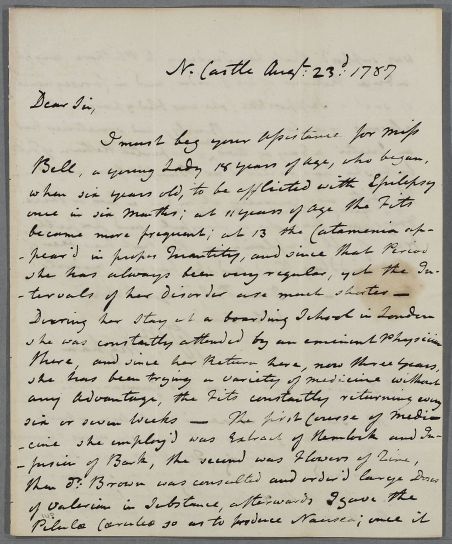 N. Castle Augt: 23d: 1787
Dear Sir,
I must beg your Assistance for Miss
Bell, a young Lady 18 years of age, who began,
when six years old, to be afflicted with Epilepsy
once in six Months; at 11 years of age the Fits
became more frequent; at 13 the Catamenia ap-
-pear'd in proper Quantity, and since that Period
she has always been very regular, yet the In-
-tervals of her Disorder are much shorter —
During her Stay at a boarding School in London
she was constantly attended by an eminent Physician
there, and since her Return here, now three years,
she has been trying a variety of medicine without
any Advantage, the Fits constantly returning every
six or seven Weeks — The first Course of Medi-
-cine she employ'd was Extract of Hemlock and In-
-fusion of Bark, the second was Flowers of Zinc,
then Dr. Brown was consulted and order'd large Doses
of Valerian in Substance, afterwards I gave the
Pilulæ Cæruleæ so as to produce Nausea; once it